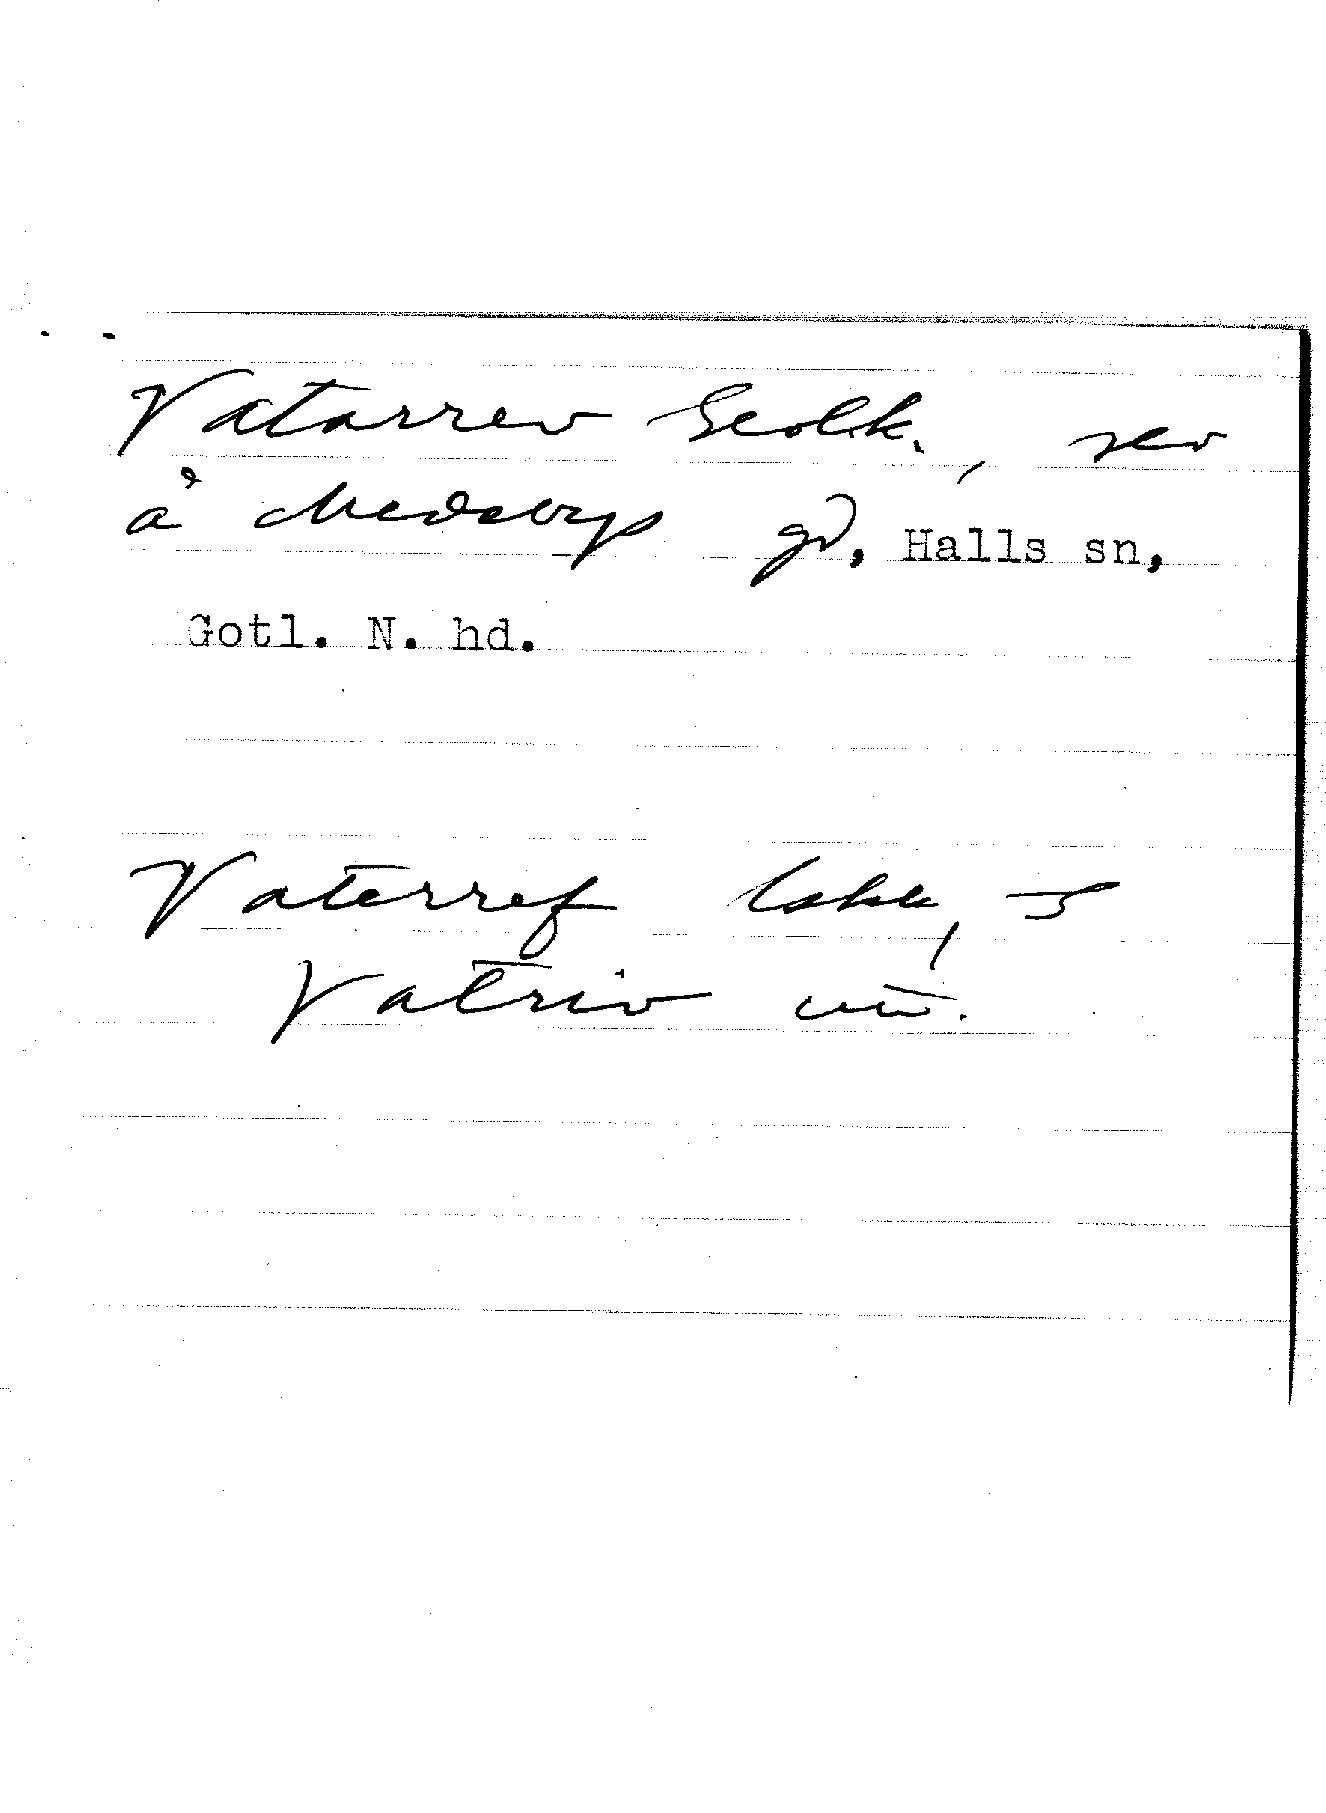 Vatarrev Geolk., rev
å Medebys gd, Halls sn,
Gotl. N. hd.
Vaterref
Vatriv utt.